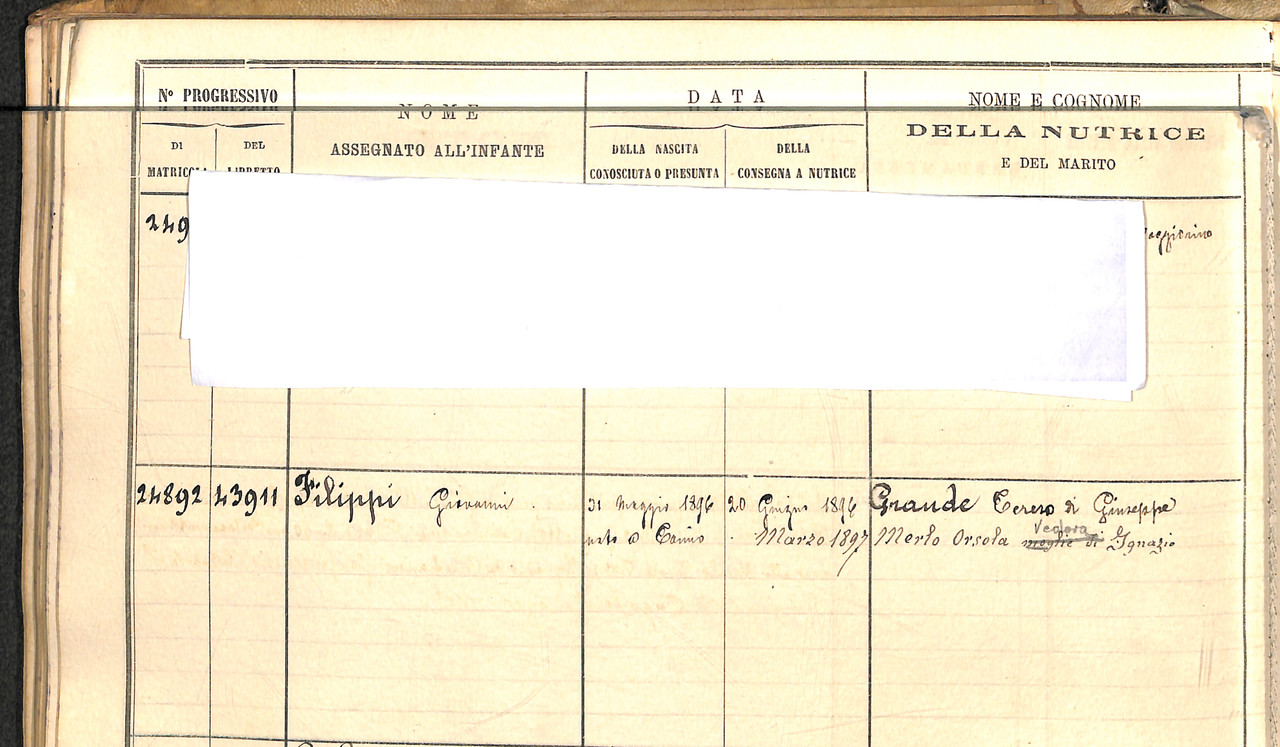 Nº PROGRESSIVO
DI MATRICOLA
DEL LIBRETTO
NOME
ASSEGNATO ALL'INFANTE
DATA
DELLA NASCITA
CONOSCIUTA O PRESUNTA
DELLA
CONSEGNA A NUTRICE
NOME E COGNOME
DELLA NUTRICE
E DEL MARITO
249
24892 43911 Filippi Giovanni . 31 Maggio 1896 20 Giugno 1896 Grande Teresa di Giuseppe
nato a Marzo 1897 Merlo Orsola moglie di Ignazio
Vedova